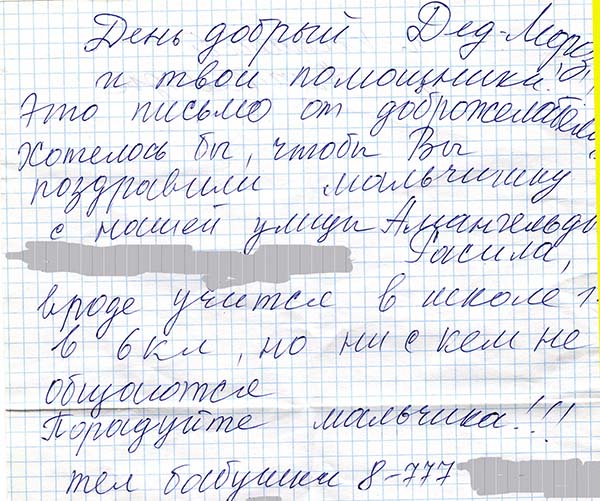 День добрый Дед-Мороз
и твои помощники!
Это письмо от доброжелателя.
Хотелось бы, чтобы Вы
поздравили мальчишку
с нашей улицы Амангельды
Расила,
вроде учится в школе 1.
в 6 кл, но ни с кем не
общаются
Порадуйте мальчика!!!
тел бабушки 8-777